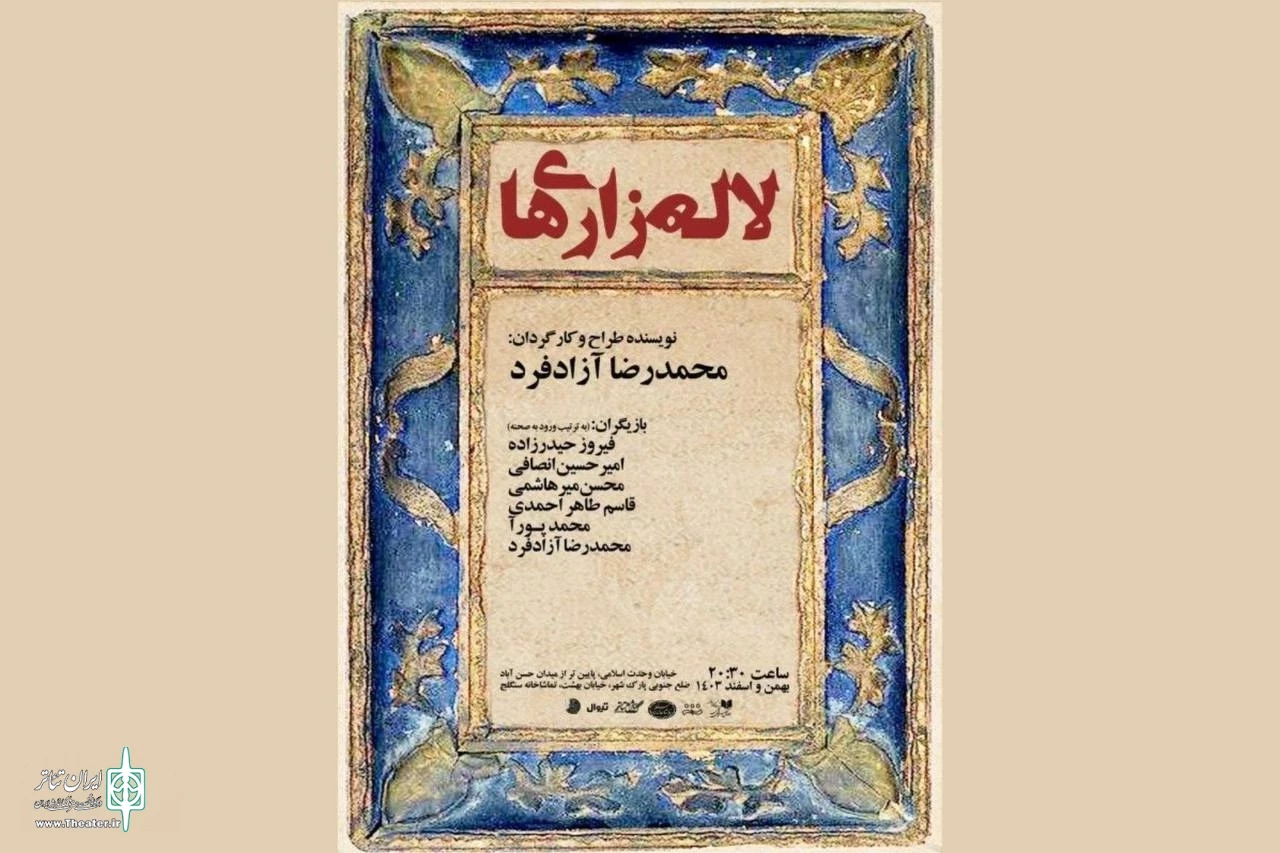 لاله‌زاری‌ها
نویسنده طراح و کارگردان:
محمدرضا آزادفرد
بازیگران: (به ترتیب ورود به صحنه)
فیروز حیدرزاده
امیرحسین انصافی
محسن میرهاشمی
قاسم طاهراحمدی
محمد پورآ
محمدرضا آزادفرد
ساعت ۲۰:۳۰
بهمن و اسفند ۱۴۰۳
خیابان وحدت اسلامی، پایین تر از میدان حسن آباد
ضلع جنوبی پارک شهر، خیابان بهشت، تماشاخانه سنگلج
تیوال
ایران تئاتر
www.Theater.ir